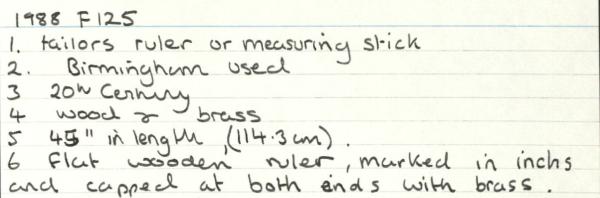 1988 F125
1. tailors ruler or measuring stick
2. Birmingham used
3 20th Century
4 wood & brass
5 45" in length, (114.3cm).
6 Flat wooden ruler, marked in inchs
and capped at both ends with brass.